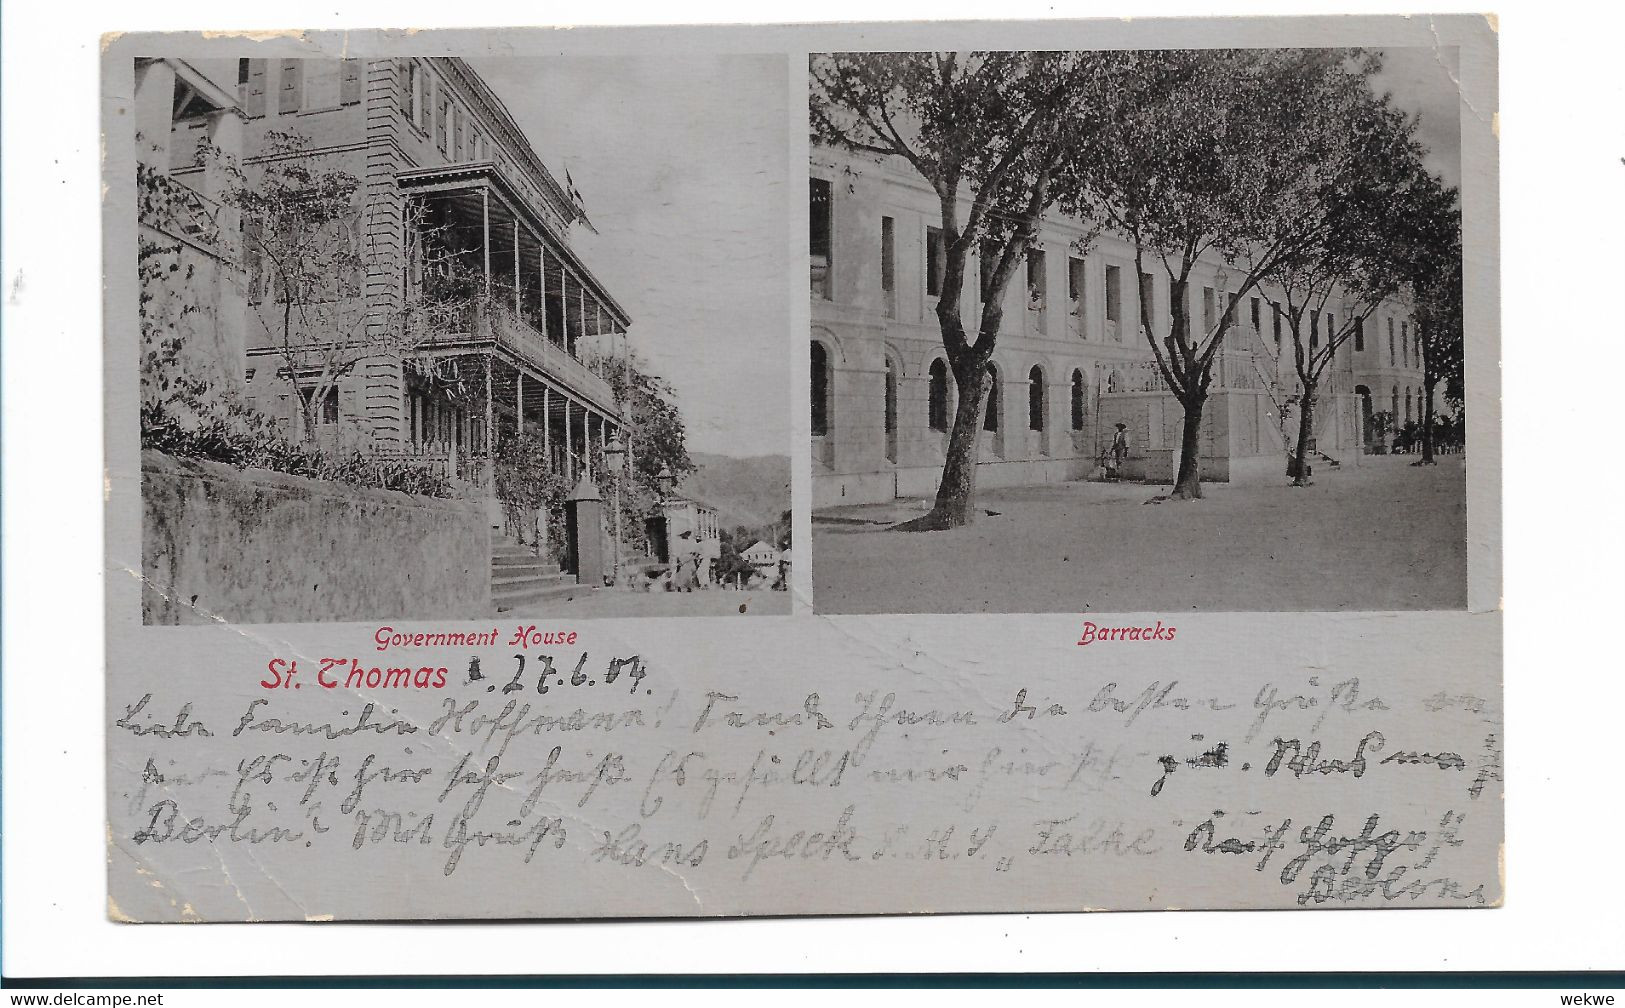 Government House
Barracks
St. Thomas d. 27.6.04.
Liebe Familie Hoffmann! Sende Ihnen die besten Grüße von
hier. Es ist hier sehr heiß. Es gefällt mir hier gut. Was
Berlin? Mit Gruß Hans Speck S.M.S. „Falke"
Berlin
delcampe.net
wekwe